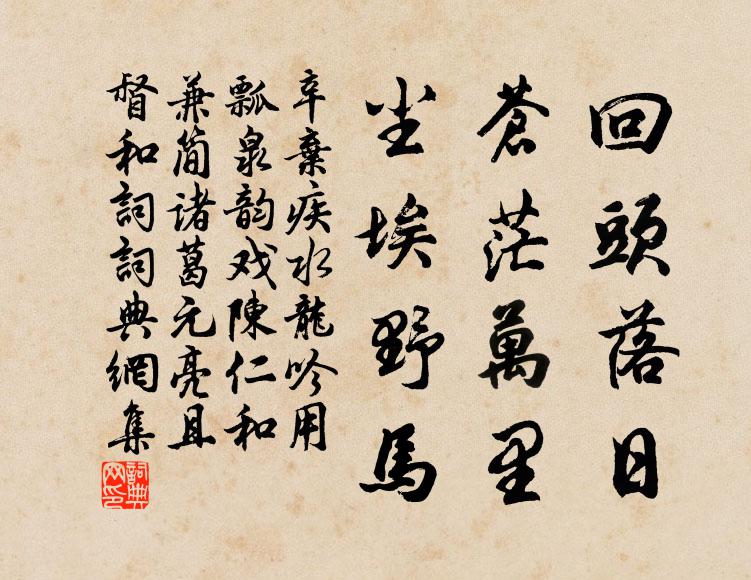 回頭落日
蒼茫萬里
尘埃野馬
辛棄疾水龍吟用
瓢泉韵戏陳仁和
兼简诸葛元亮且
督和詞詞典網集
詞典网印